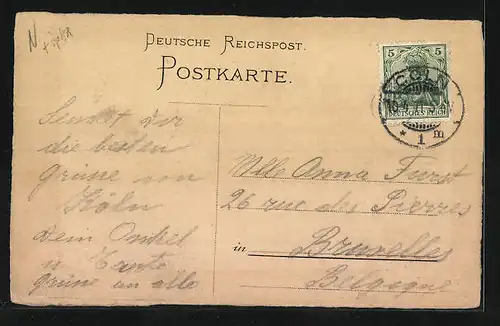 DEUTSCHE REICHSPOST.
POSTKARTE.
5 5
DEUTSCHES REICH
CÖLN
* 1 m
Sendet dir
die besten
grüsse von
Köln
Dein Onkel
u Tante
grüsse an alle
Mlle Anna Furst
26 rue des Pierres
in Bruxelles
Belgique